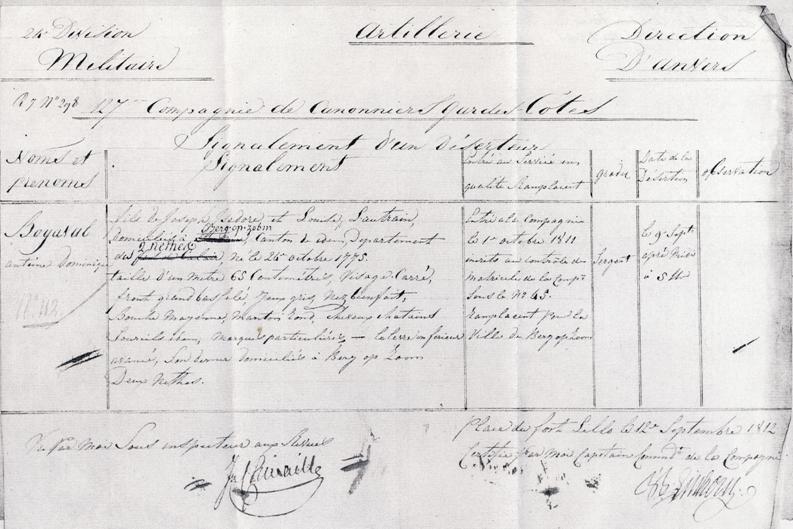 24e Division
Militaire
Artillerie
Direction
D'anvers
R 7 No 298
127me Compagnie de Canonniers Gardes Côtes
Signalement d'un Déserteur
Noms et
prenoms
Signalement
Entré au Service en
qualité Remplacent
grade
Date de la
Désertion
observation
antoine Dominique
Fils de Joseph, isidore, et Louise
Berg-op-zoom
Domicilié à Canton de idem, Departement
2 nethes
né le 25 octobre 1775
taille d'un metre 65 Centimetres, Visage Carré,
front grand, yeux gris, Nez bienfait,
Bouche Moyenne, Manton rond, cheveux chatains
Sourcils idem, Marques particulières — la levre inferieur
son dernier domicilié à Berg op Zoom
Deux Nethes.
Entré a la Compagnie
le 1er octobre 1811
inscrit au controle de
Matricule de la Compe
Sous le No 65.
remplacent pour la
Ville de Bergopzoom
Sergent
le 9 Sept
après Midi
à 5 H
No 42
Vu Par Moi Sous inspecteur aux Revues
Place du fort Lillo le 12 Septembre 1812
Certifié par moi Capitaine Commdt de la Compagnie